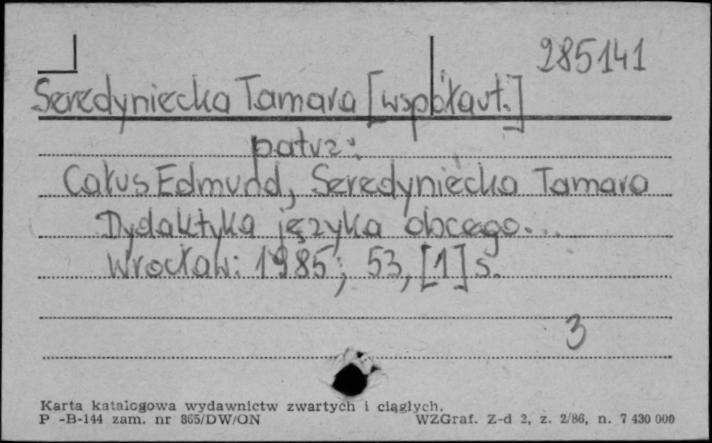 285141
Seredyniecka Tamara [współaut.]
patrz:
Całus Edmund, Seredyniecka Tamara
Dydaktyka języka obcego...
Wrocław: 1985; 53, [1] s.
3
Karta katalogowa wydawnictw zwartych i ciągłych.
P -B-144 zam. nr 865/DW/ON WZGraf. Z-d 2, z. 2/86, n. 7 430 000